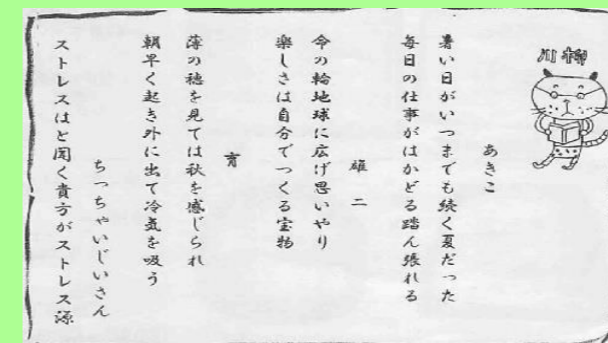 川柳
あきこ
暑い日がいつまでも続く夏だった
毎日の仕事がはかどる踏ん張れる
雄二
命の輪地球に広げ思いやり
楽しさは自分でつくる宝物
育
薄の穂を見ては秋を感じられ
朝早く起き外に出て冷気を吸う
ちっちゃいじいさん
ストレスはと聞く貴方がストレス源